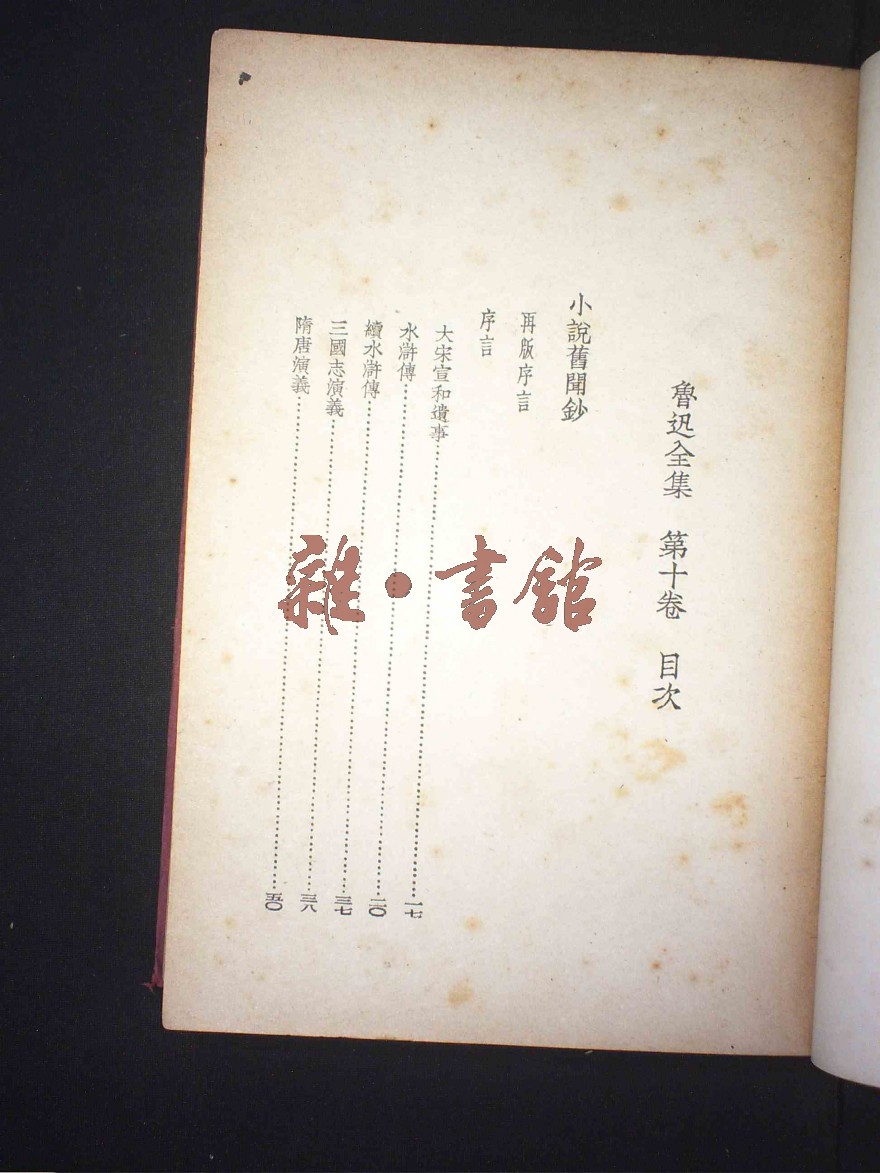 魯迅全集 第十卷 目次
小說舊聞鈔
再版序言
序言
大宋宣和遺事……一七
水滸傳……二〇
續水滸傳……三七
三國志演義……三八
隋唐演義……五〇
雜·書館